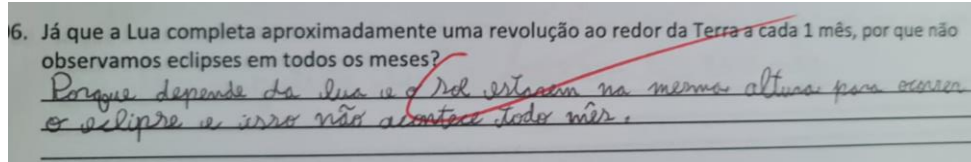 06. Já que a Lua completa aproximadamente uma revolução ao redor da Terra a cada 1 mês, por que não
observamos eclipses em todos os meses?
Porque depende da lua e o sol estarem na mesma altura para ocorrer
o eclipse e isso não acontece todo mês.